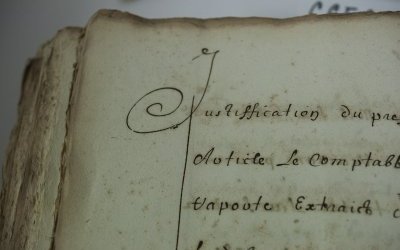 Justiffication du pre
Article Le Comptabl
rapoute Extraict